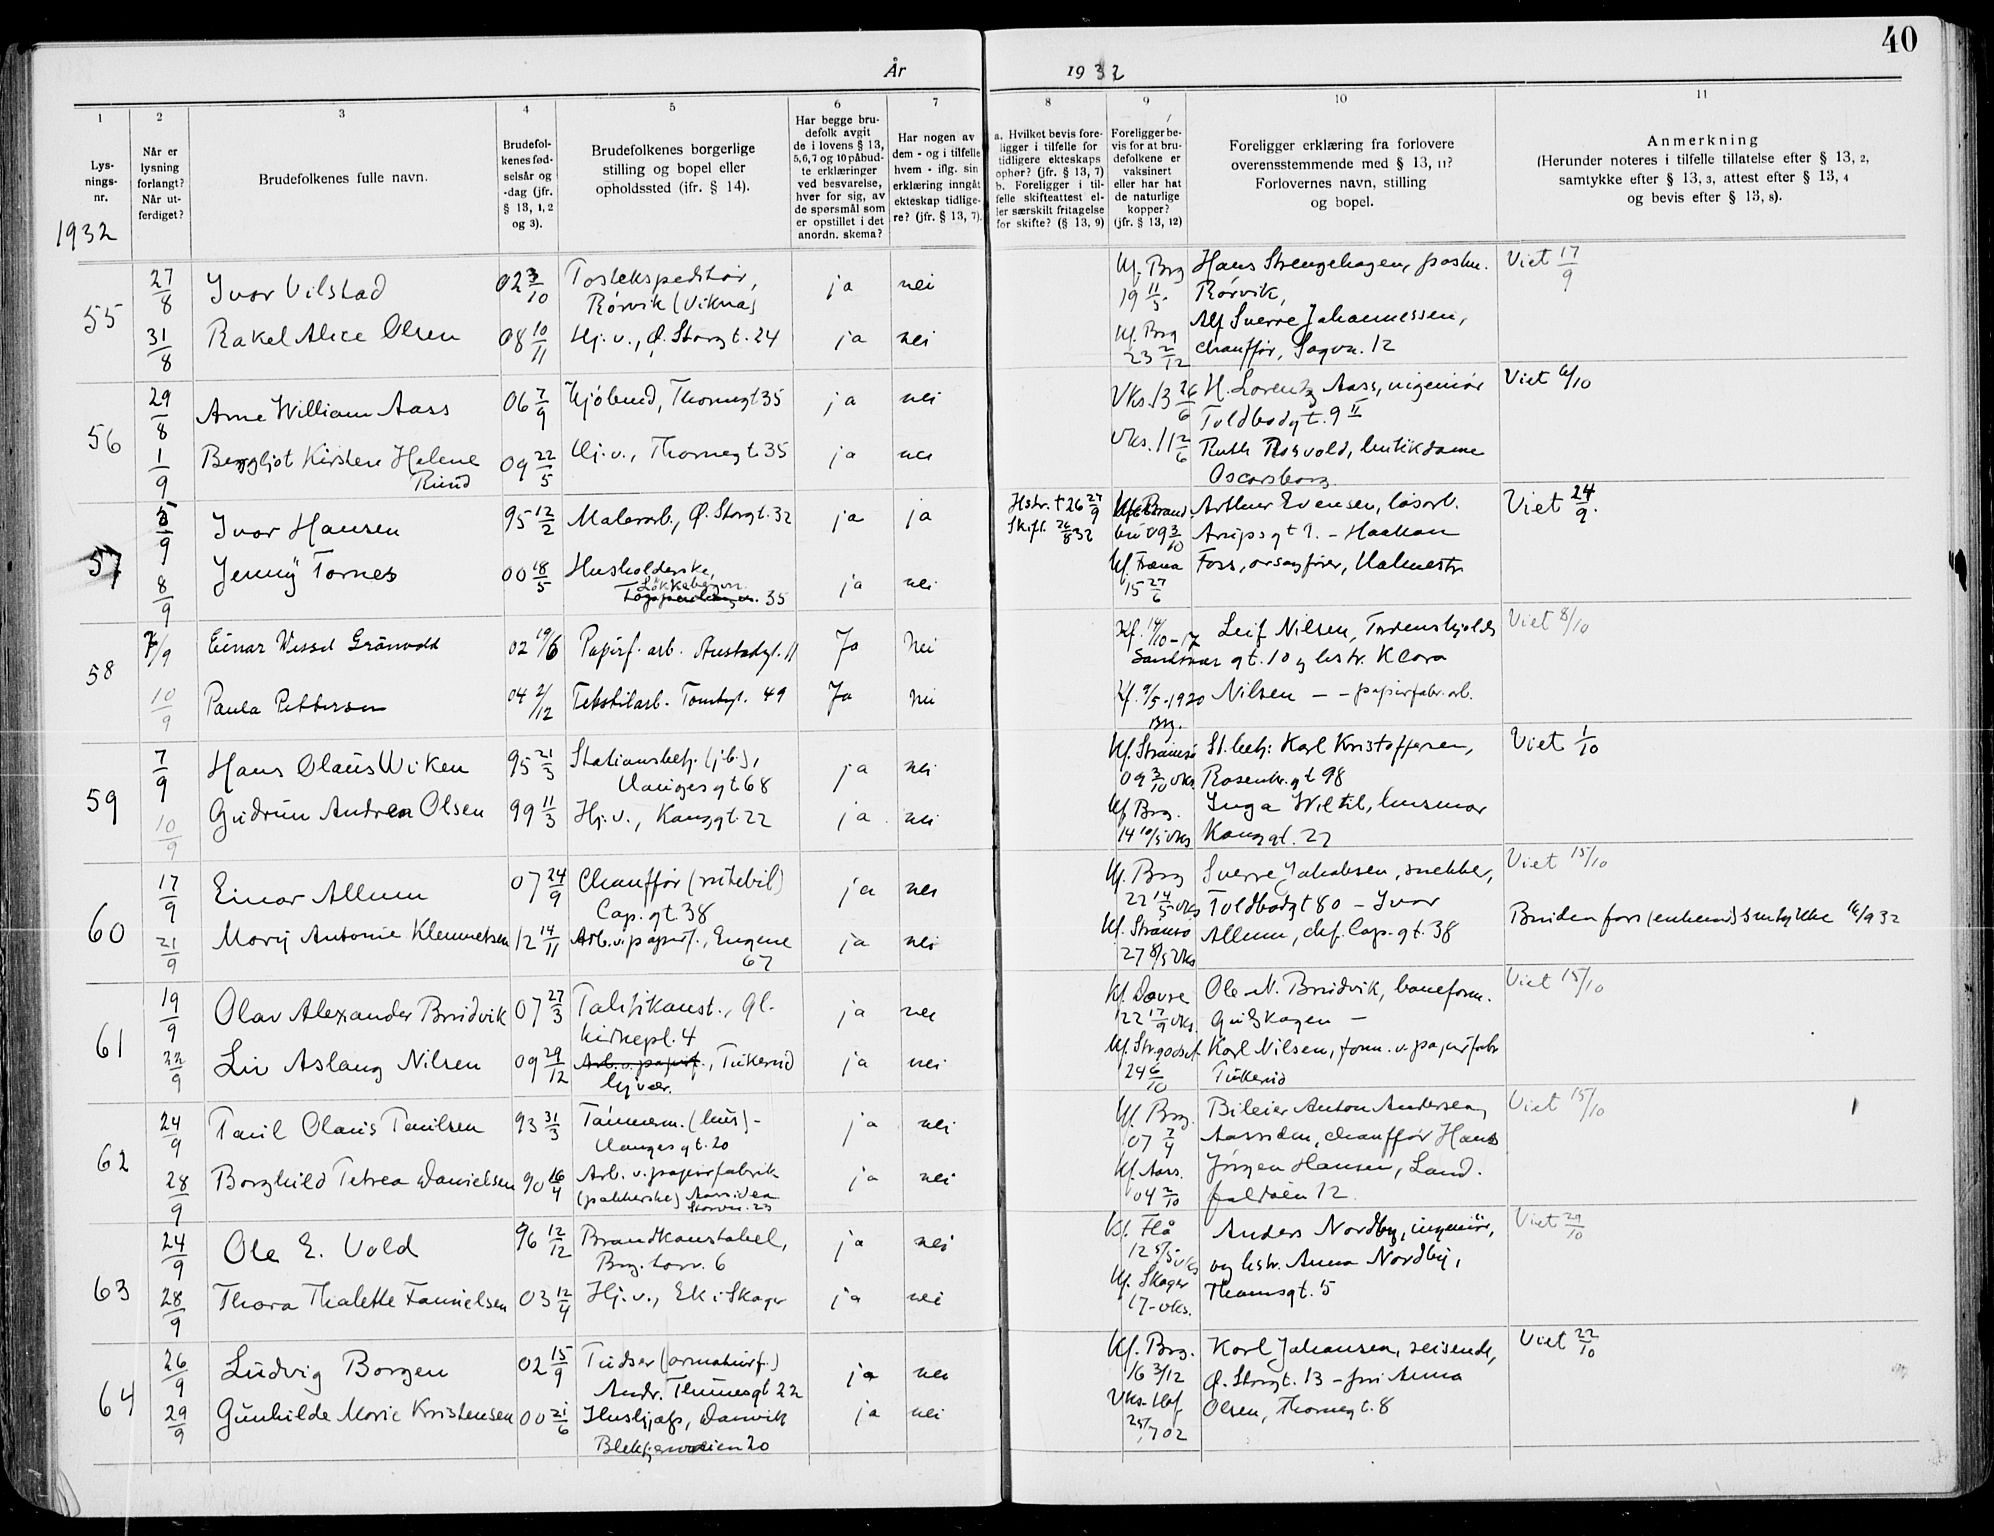 40
År 1932
1 2 3 4 5 6 7 8 9 10 11
Lys-
nings-
nr.
Når er
lysning
forlangt?
Når ut-
ferdiget?
Brudefolkenes fulle navn.
Brudefol-
kenes fød-
selsår og
-dag (jfr.
§ 13, 1, 2
og 3).
Brudefolkenes borgerlige
stilling og bopel eller
opholdssted (jfr. § 14).
Har begge bru-
defolk avgit
de i lovens § 13,
5, 6, 7 og 10 påbud-
te erklæringer
ved besvarelse,
hver for sig, av
de spørsmål som
er opstillet i det
anordn. skema?
Har nogen av
dem - og i tilfelle
hvem - iflg. sin
erklæring inngåt
ekteskap tidlige-
re? (jfr. § 13, 7).
a. Hvilket bevis fore-
ligger i tilfelle for
tidligere ekteskaps
ophør? (jfr. § 13, 7)
b. Foreligger i til-
felle skifteattest el-
ler særskilt fritagelse
for skifte? (§ 13, 9)
Foreligger be-
vis for at bru-
defolkene er
vaksinert
eller har hat
de naturlige
kopper?
(jfr. § 13, 12)
Foreligger erklæring fra forlovere
overensstemmende med § 13, 11?
Forlovernes navn, stilling
og bopel.
Anmerkning
(Herunder noteres i tilfelle tillatelse efter § 13, 2,
samtykke efter § 13, 3, attest efter § 13, 4
og bevis efter § 13, 8).
1932
55 27/8 Ivar Vilstad 02 3/10 Postekspeditør, ja nei Kf. Brg Hans Strengehagen, postm. Viet 17/9
Rørvik (Vikna) 19 11/5 Rørvik,
31/8 Rakel Alice Olsen 08 10/11 Hj. v., Ø. Storgt. 24 ja nei Kf. Brg Alf Sverre Johannessen,
23 2/12 chauffør, Sagv. 12
56 29/8 Arne William Aass 06 7/9 Kjøbmd, Thornegt 35 ja nei Vks. 13 26/6 H. Lorentz Aass, ingeniør Viet 6/10
Toldbodgt. 9 II
1/9 Bergljot Kirsten Helene 09 22/5 Hj. v., Thornegt. 35 ja nei Vks. 11 2/6 Ruth Rosvold, butikdame
Rund Oscarsborg
57 5/9 Ivar Hansen 95 12/2 Malerarb., Ø. Storgt. 32 ja ja Hstr. † 26 27/9 Arthur Evensen, løsarb. Viet 24/9.
Skift. 26/8 32 bu 09 3/10 Arupsgt 9. - Haakon
8/9 Jenny Tornes 00 18/5 Husholderske, ja nei Kf. Fræna Foss, orsagfører, Holmestr
35 15 27/6
58 7/9 Einar Wessel Grönvold 02 19/6 Papirf. arb. Austadgt. 11 Ja Nei Kf. 14/10-17 Leif Nilsen, Tordenskjolds Viet 8/10
Sandsvær gt. 10 og hstr. Klara
10/9 Paula Pettersen 04 2/12 Tekstilarb. Tomtegt. 49 Ja Nei Kf. 9/5-1920 Nilsen - - papirfabr. arb.
Brg.
59 7/9 Hans Olaus Wiken 95 21/3 Stationsbetj. (jb.), ja nei Kf. Strømsø St. betj: Karl Kristoffersen, Viet 1/10
Haugesgt 68 09 3/10 Vks. Rosenkr.gt 98
10/9 Gudrun Andrea Olsen 99 11/3 Hj. v., Konggt. 22 ja. nei Kf. Brg. Inga Wiltil, husmor
14 10/5 Vks Konggt. 22
60 17/9 Einar Allum 07 24/9 Chauffør (rutebil) ja nei Kf. Brg Sverre Jakobsen, snekker, Viet 15/10
Cap. gt. 38 22 14/5 Vks Toldbodgt 80 - Ivar
21/9 Mary Antonie Klemmetsen 12 14/11 Arb. v. papirf., Eugene ja nei Kf. Strømsø Allum, chf. Cap. gt. 38 Brudens fars (enkem) samtykke 16/9 32
67 27 8/5 Vks
61 19/9 Olav Alexander Bruidvik 07 27/3 Politikonst., Gl. ja nei Kf. Dovre Ole N. Bruidvik, baneform. Viet 15/10
kirkepl. 4 22 17/9 Vks.
22/9 Liv Aslaug Nilsen 09 29/12 Arb. v. papirf., Tukerud ja nei Karl Nilsen, form. v. papirfabr
hj vær. 24 6/10 Tukerud
62 24/9 Paul Olaus Paulsen 93 31/3 Tømmerm. (hus) - ja nei Kf. Brg. Bileier Anton Andersen, Viet 15/10
Haugesgt. 20 07 7/4 Aassiden, chauffør Hans
28/9 Borghild Petrea Danielsen 90 16/4 Arb. v. papirfabrik ja nei Kf. Aass. Jørgen Hansen, Land.
(pakkerske) Aassiden 04 2/10 falløen 12.
Storv. 23
63 24/9 Ole E. Vold 96 12/12 Brandkonstabel, ja nei Kf. Flå Anders Nordby, ingeniør, Viet 29/10
Brg. torv. 6 12 5/5 vks og hstr. Anna Nordby,
28/9 Thora Thalette Fannielsen 03 12/4 Hj. v., Ek i Skoger ja nei Kf. Skoger Thomsgt. 5
17 - vks.
64 26/9 Ludvig Borgen 02 15/9 Pudser (armaturf.) ja nei Kf. Brg. Karl Johansen, reisende, Viet 22/10
Andr. Thumesgt 22 16 3/12 Ø. Storgt. 13 - fru Anna
29/9 Gunhilde Marie Kristensen 00 21/6 Hushjælp, Danvik ja nei Vks. Hof Olsen, Thornegt. 8
Blekkjerveien 20 25/7 02